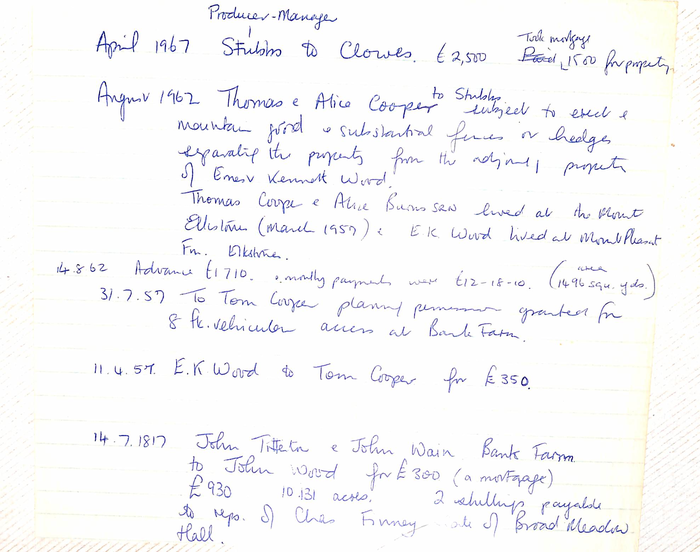 Producer-Manager
April 1967 Stubbs to Clowes. £2,500 Took mortgage Paid 1500 for property
August 1962 Thomas & Alice Cooper to Stubbs subject to erect &
mountain good & substantial fences or hedges
separating the property from the adjoining property
of Ernest Kennett Wood.
Thomas Cooper & Alice lived at the Mount
Elkstone (March 1957) & E K Wood lived at Mount Pleasant
Fm. Elkstone.
14.8.62 Advance £1710. monthly payments were £12-18-10. (area 1496 squ. yds.)
31.7.57 To Tom Cooper planning permission granted for
8 ft. vehicular access at Bank Farm.
11.4.57. E.K Wood to Tom Cooper for £350.
14.7.1817 John Titteton & John Wain Bank Farm
to John Wood for £300 (a mortgage)
£930 10.131 acres. 2 shillings payable
to reps. of Chas Finney late of Broad Meadow
Hall.